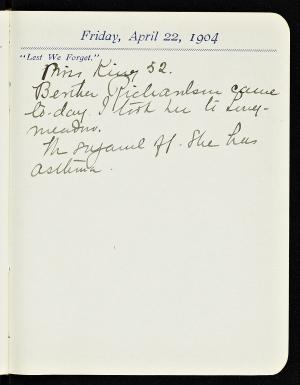 Friday, April 22, 1904
"Lest We Forget."
Miss King 52.
Bertha Richardson came
to-day. I took her to Long-
meadow.
off. She has
asthma.